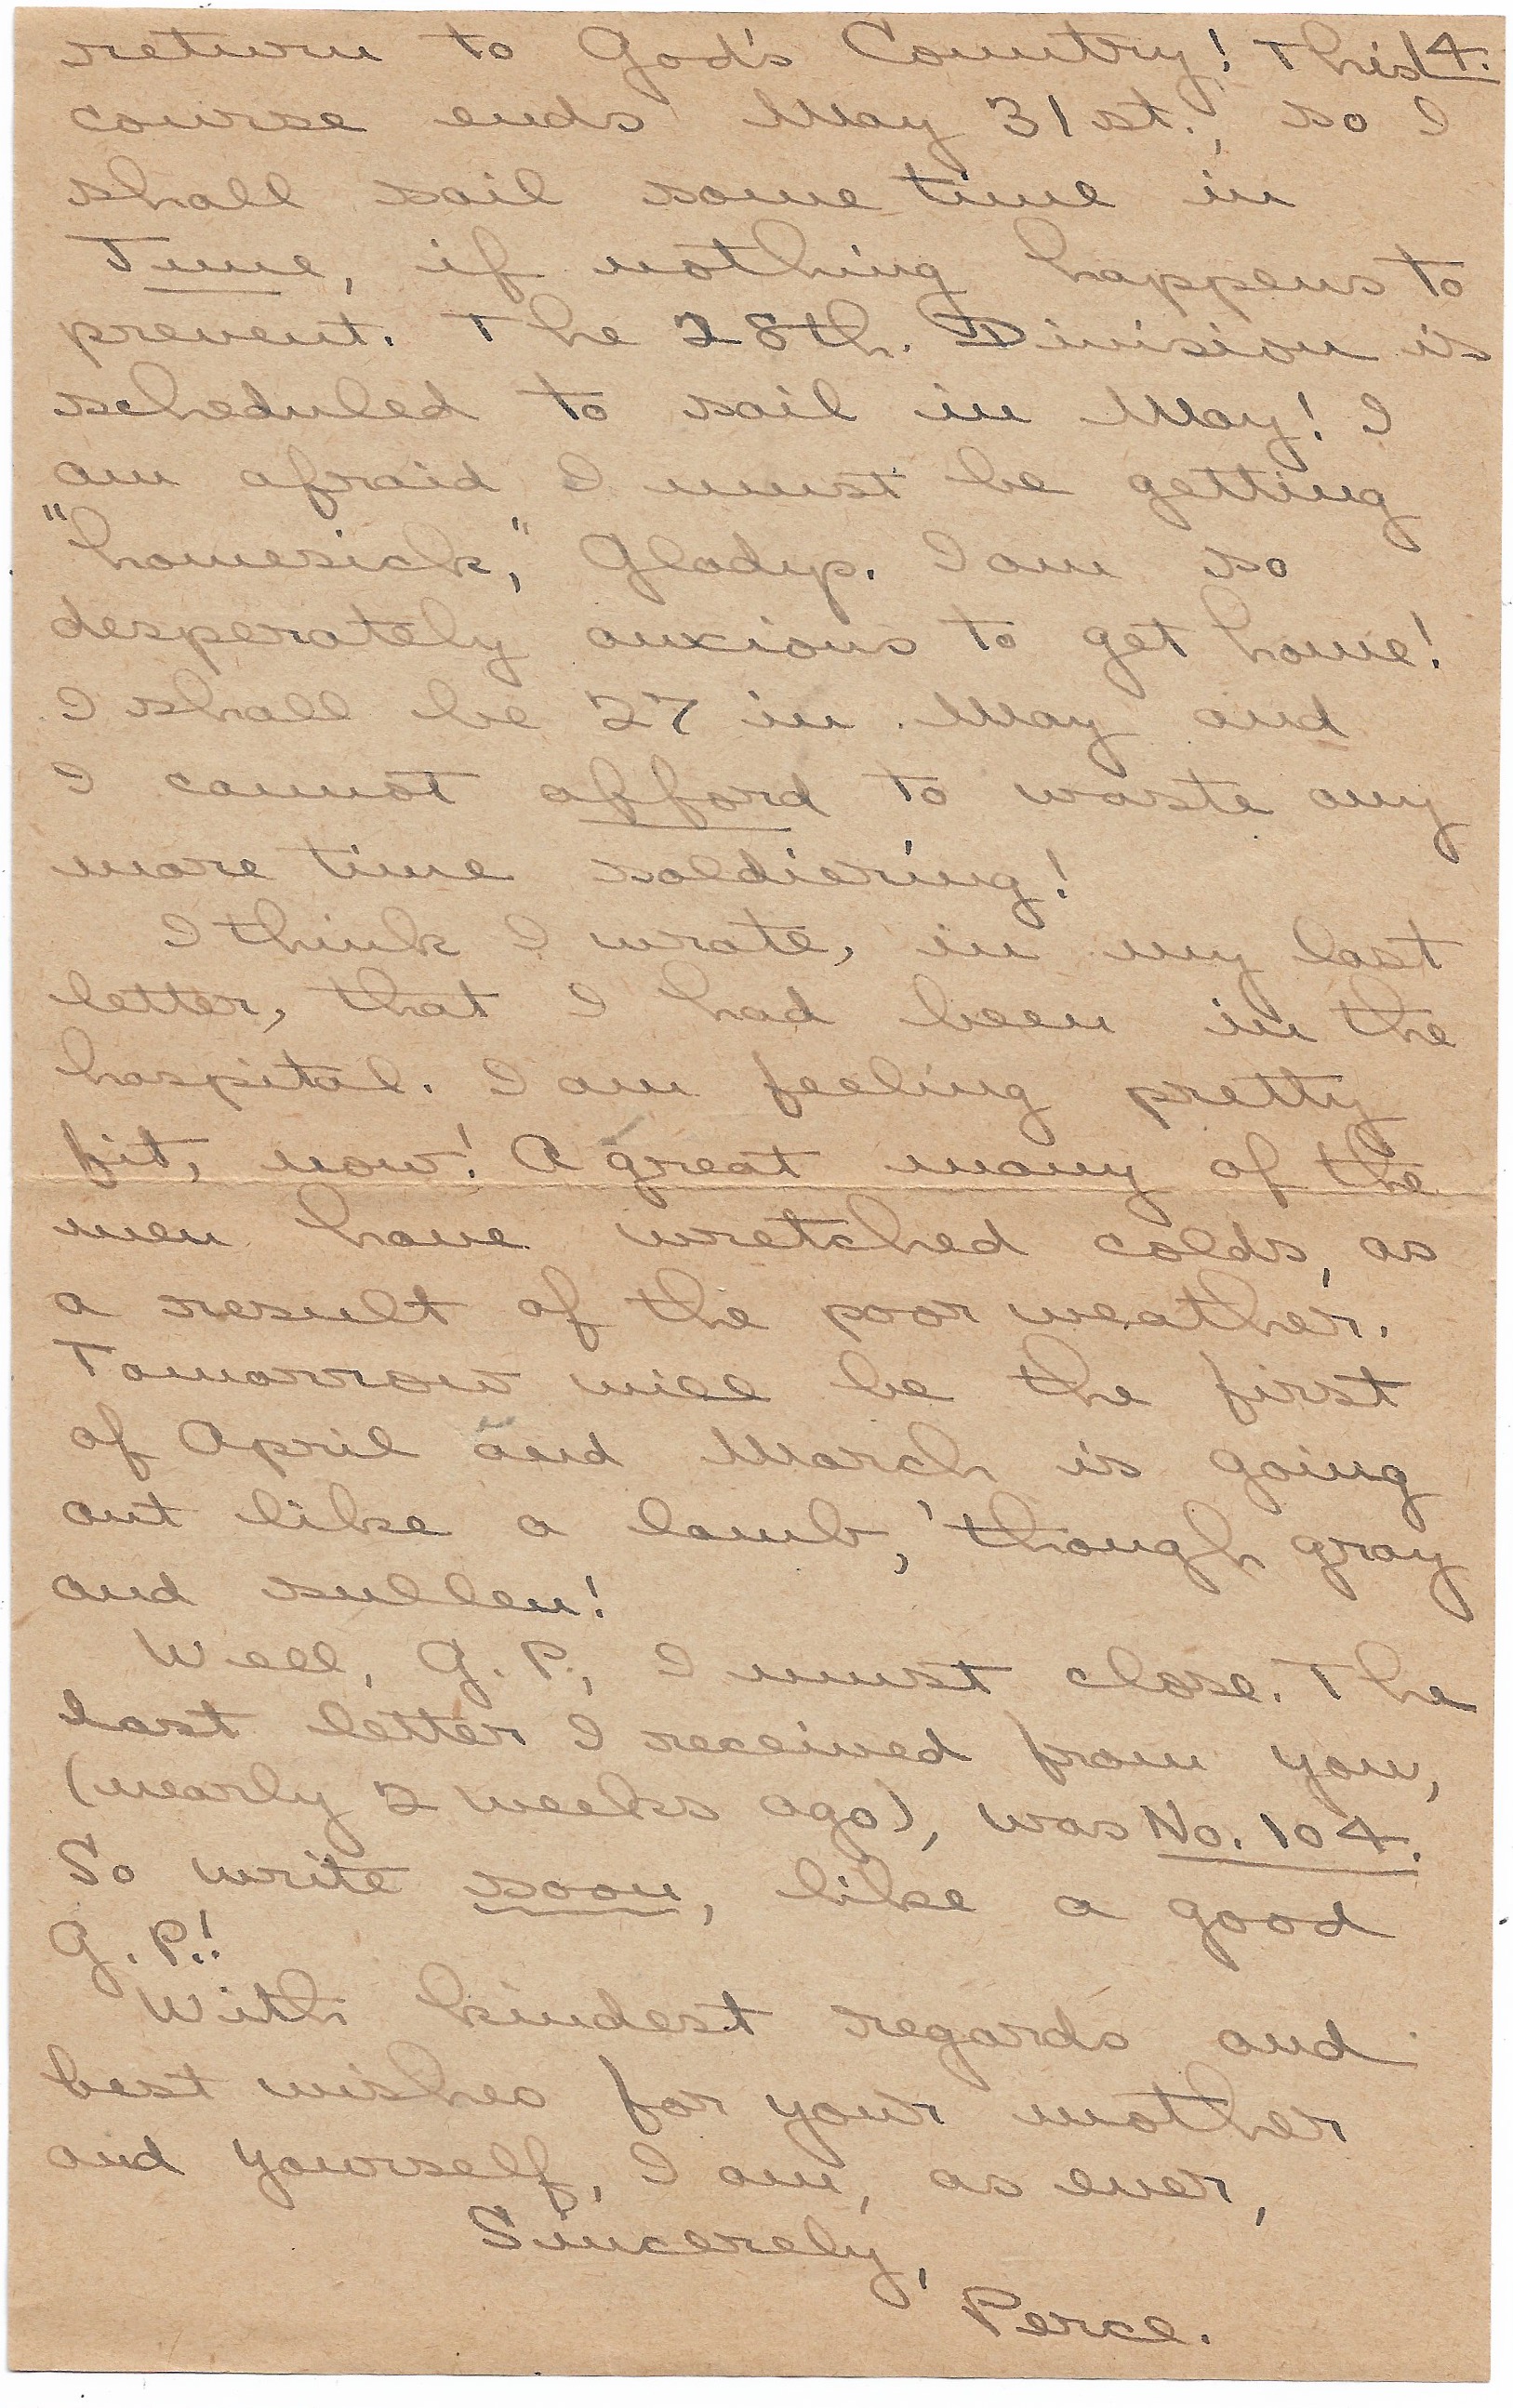 return to God's Country! This 4.
course ends May 31st., so I
shall sail some time in
June, if nothing happens to
prevent. The 28th. Division is
scheduled to sail in May! I
am afraid I must be getting
"homesick," Gladys. I am so
desperately anxious to get home!
I shall be 27 in May and
I cannot afford to waste any
more time soldiering!
I think I wrote, in my last
letter, that I had been in the
hospital. I am feeling pretty
fit, now! A great many of the
men have wretched colds, as
a result of the poor weather.
Tomorrow will be the first
of April and March is going
out like a lamb, 'though gray
and sullen!
Well, G. P., I must close. The
last letter I received from you,
(nearly 2 weeks ago), was No. 104.
So write soon, like a good
G. P.!
With kindest regards and
best wishes for your mother
and yourself, I am, as ever,
Sincerely,
Perce.